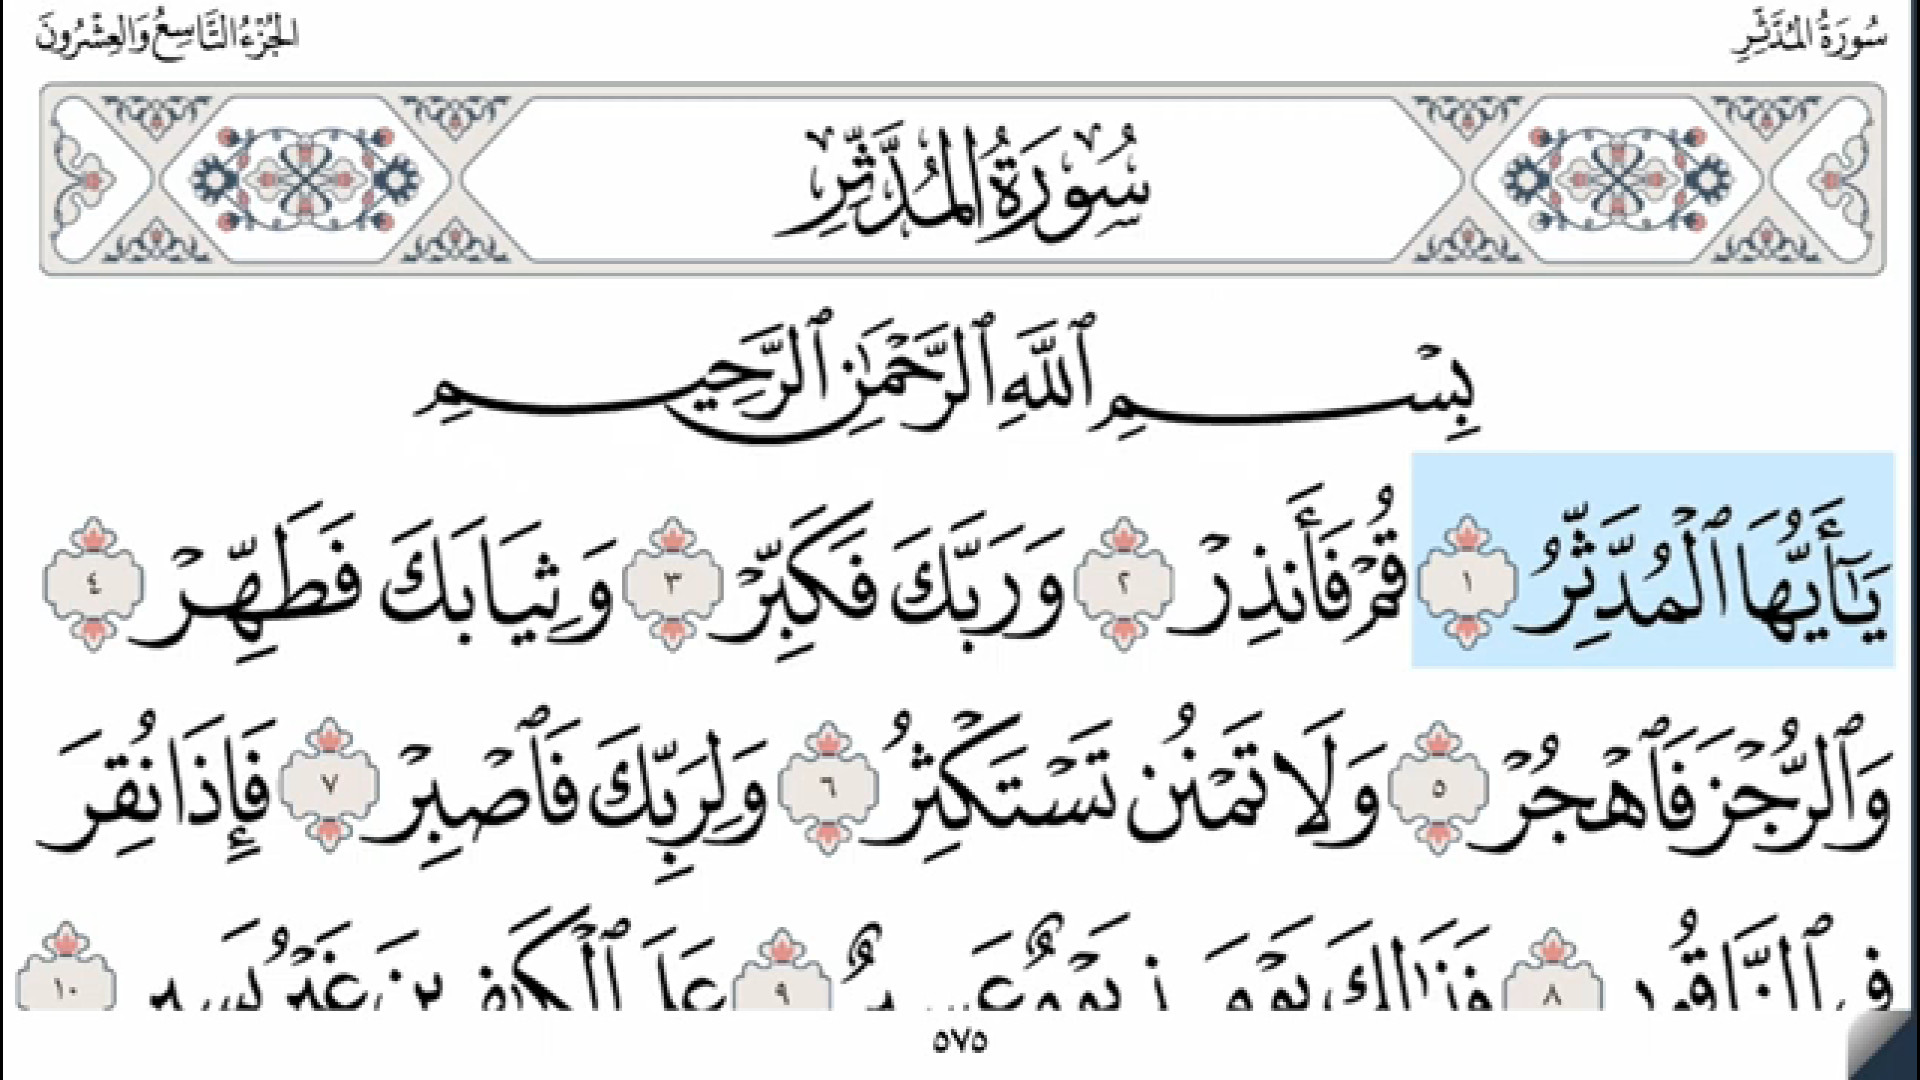 سُورَةُ المُدَّثِّرِ
الجُزْءُ التَّاسِعُ وَالعِشْرُونَ
سُورَةُ المُدَّثِّرِ
بِسْمِ ٱللَّهِ ٱلرَّحْمَٰنِ ٱلرَّحِيمِ
يَٰٓأَيُّهَا ٱلْمُدَّثِّرُ ١ قُمْ فَأَنذِرْ ٢ وَرَبَّكَ فَكَبِّرْ ٣ وَثِيَابَكَ فَطَهِّرْ ٤
وَٱلرُّجْزَ فَٱهْجُرْ ٥ وَلَا تَمْنُن تَسْتَكْثِرُ ٦ وَلِرَبِّكَ فَٱصْبِرْ ٧ فَإِذَا نُقِرَ
فِى ٱلنَّاقُورِ ٨ فَذَٰلِكَ يَوْمَئِذٍ يَوْمٌ عَسِيرٌ ٩ عَلَى ٱلْكَٰفِرِينَ غَيْرُ يَسِيرٍ ١٠
٥٧٥